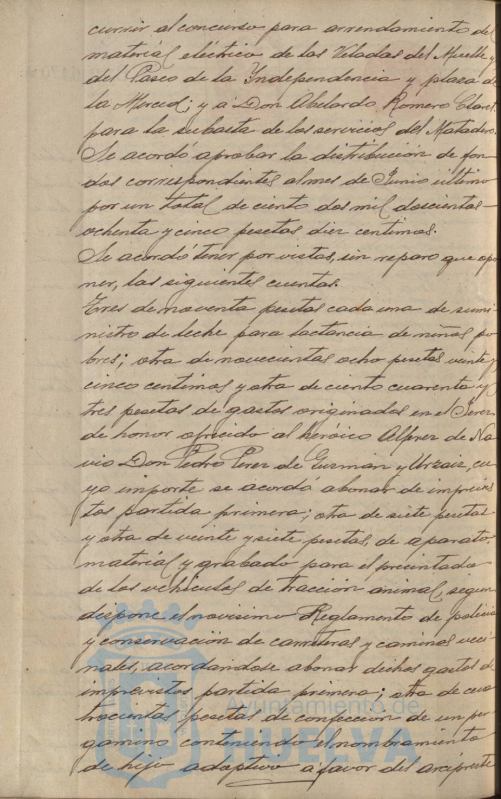 currir al concurso para arrendamiento del
material eléctrico de las Veladas del Muelle y
del Paseo de la Independencia y plaza de
la Merced; y a Don Abelardo Romero Claret
para la subasta de los servicios del Matadero.
Se acordó aprobar la distribución de fon-
dos correspondientes al mes de Junio último
por un total de ciento dos mil doscientas
ochenta y cinco pesetas diez centimos.
Se acordó tener por vistas, sin reparo que opo-
ner, las siguientes cuentas.
Tres de noventa pesetas cada una de sumi-
nistro de leche para lactancia de niños po-
bres; otra de novecientas ocho pesetas veinte y
cinco centimos y otra de ciento cuarenta y
tres pesetas de gastos originados en el Jerez
de honor ofrecido al heróico Alferez de Na-
vio Don Pedro Perez de Guzmán y Urzaiz, cu-
yo importe se acordó abonar de imprevis-
tos partida primera; otra de siete pesetas
y otra de veinte y siete pesetas, de aparato,
material y grabado para el precintado
de los vehiculos de tracción animal, segun
dispone el novisimo Reglamento de policia
y conservación de carreteras y caminos veci-
nales, acordandose abonar dichos gastos de
imprevistos partida primera; otra de cua-
trocientas pesetas de confección de un per-
gamino conteniendo el nombramiento
de hijo adoptivo a favor del arcipreste
Ayuntamiento de
HUELVA